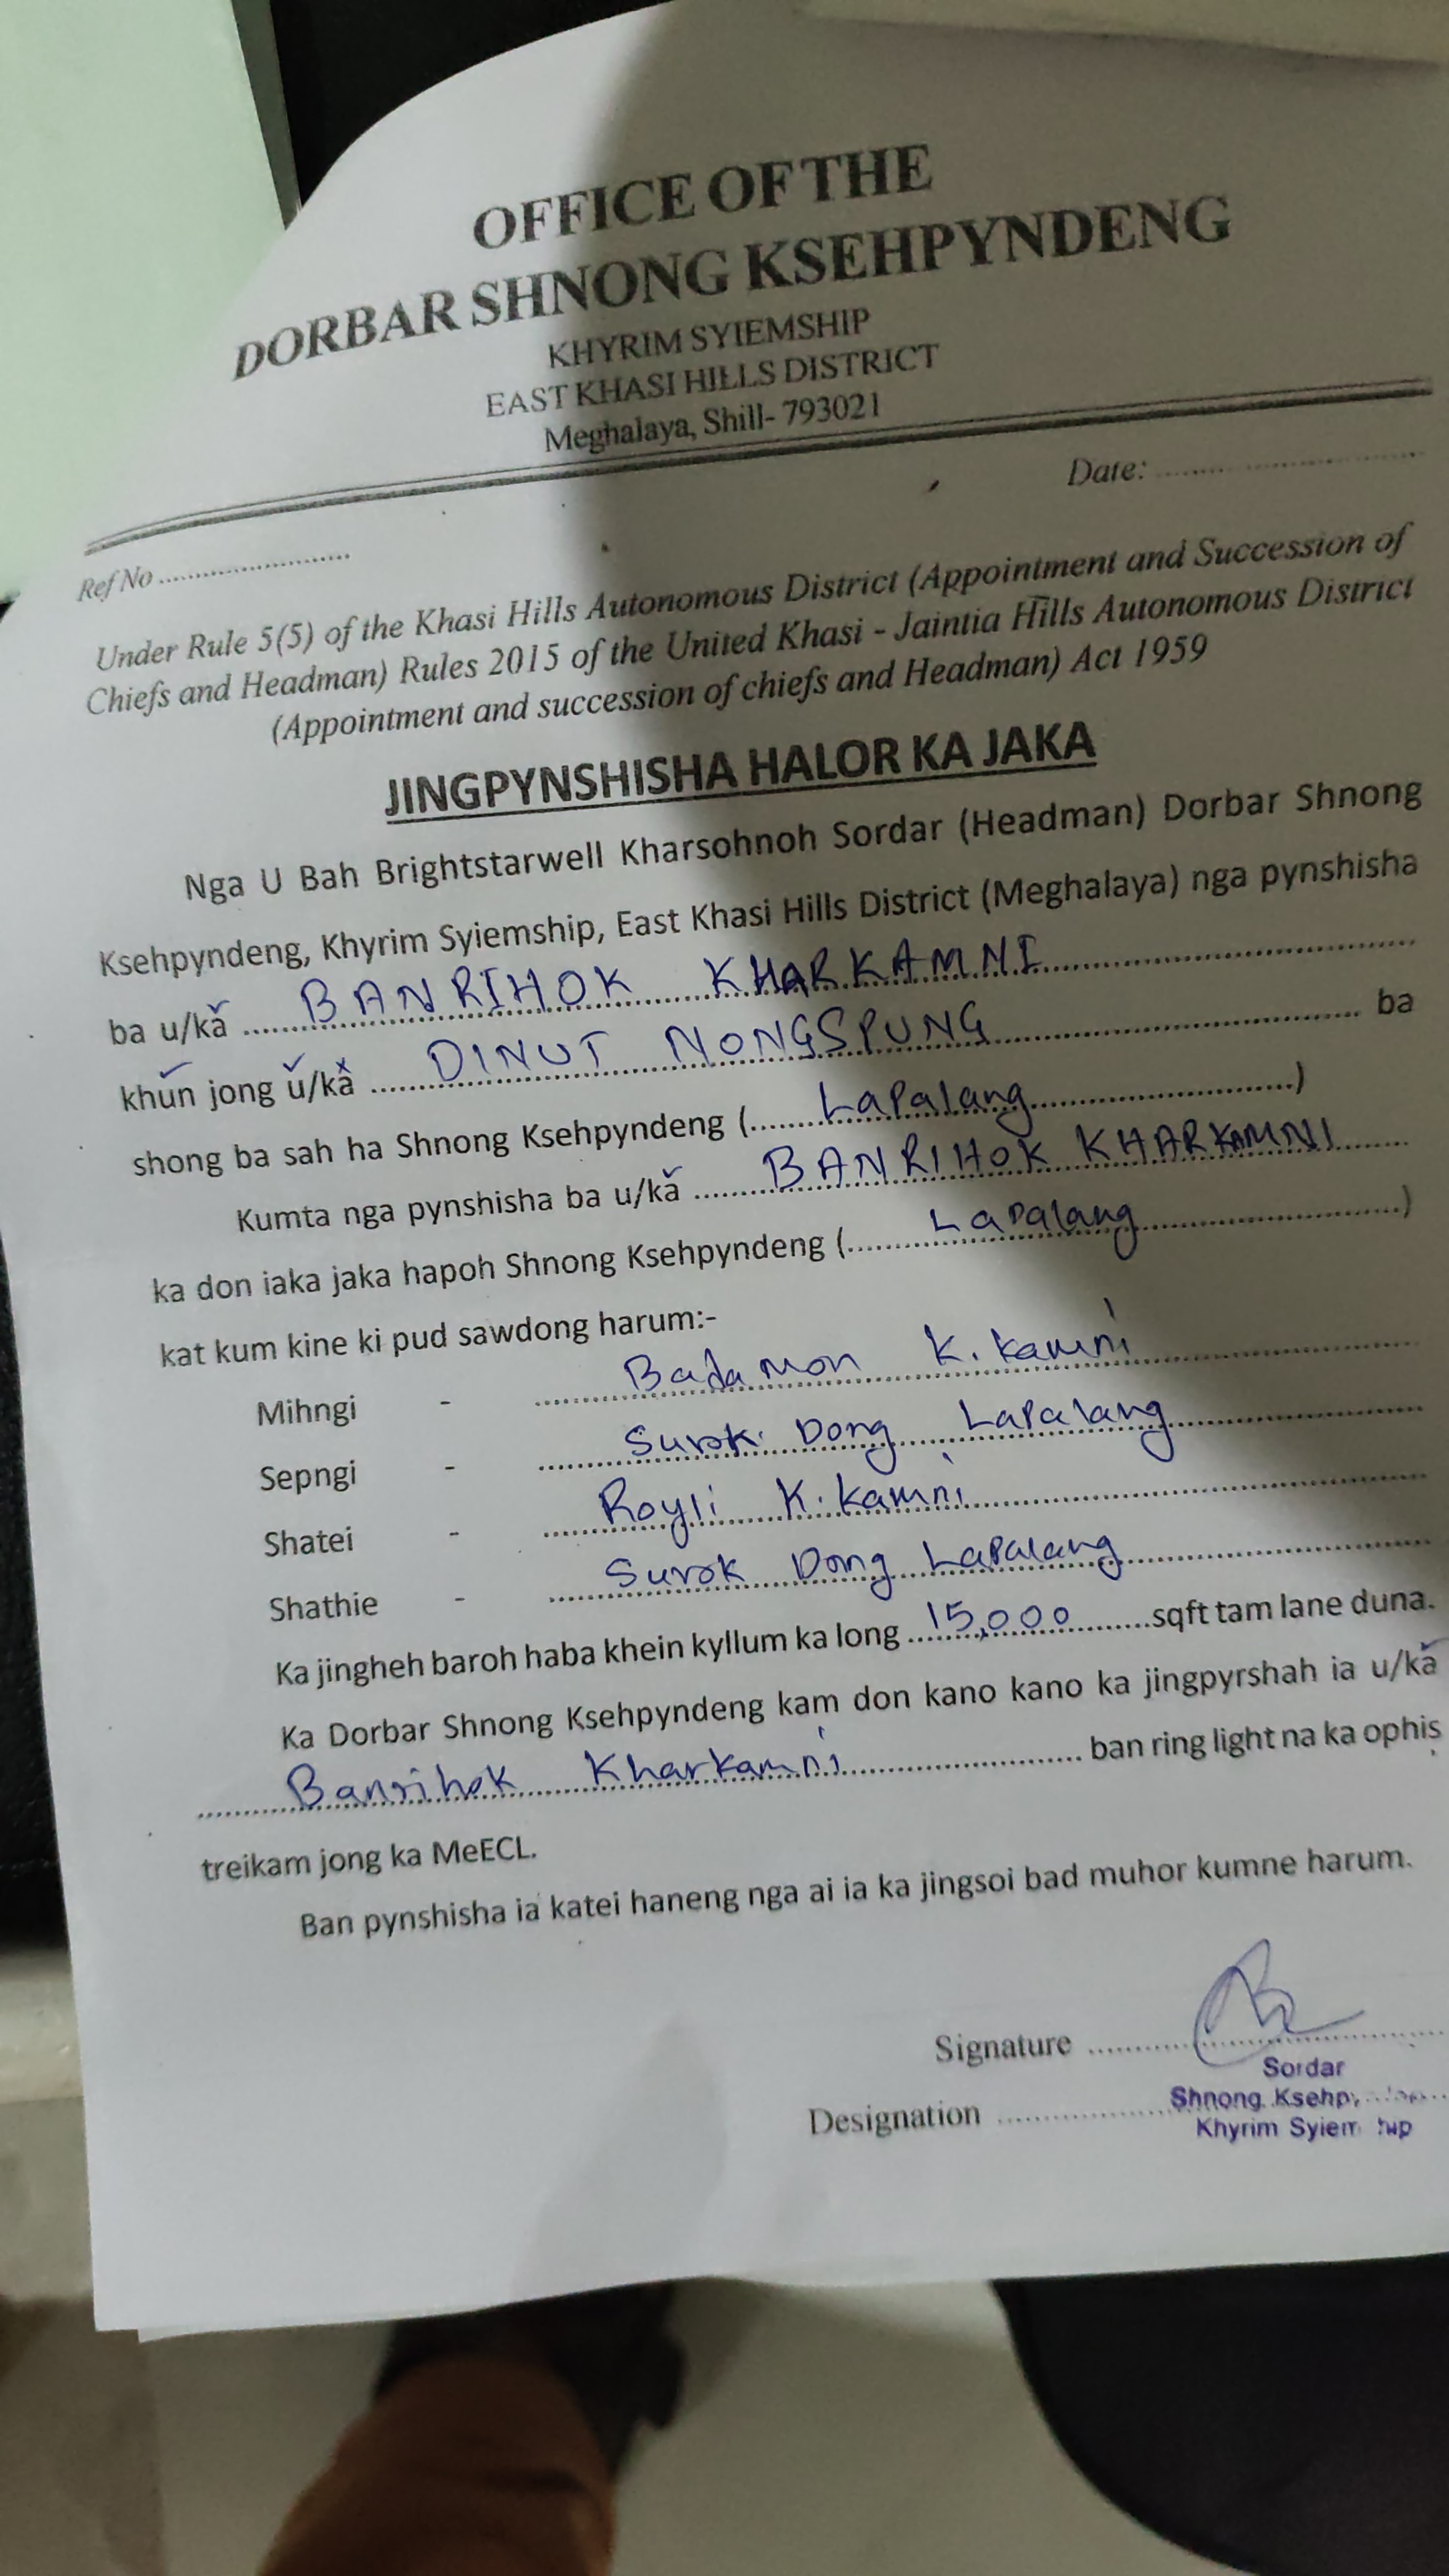 OFFICE OF THE
DORBAR SHNONG KSEHPYNDENG
KHYRIM SYIEMSHIP
EAST KHASI HILLS DISTRICT
Meghalaya, Shill- 793021
Date: ..........................
Ref No ..........................
Under Rule 5(5) of the Khasi Hills Autonomous District (Appointment and Succession of
Chiefs and Headman) Rules 2015 of the United Khasi - Jaintia Hills Autonomous District
(Appointment and succession of chiefs and Headman) Act 1959
JINGPYNSHISHA HALOR KA JAKA
Nga U Bah Brightstarwell Kharsohnoh Sordar (Headman) Dorbar Shnong
Ksehpyndeng, Khyrim Syiemship, East Khasi Hills District (Meghalaya) nga pynshisha
ba u/kă ...... BANRIHOK KHARKAMNI ......
khŭn jong ŭ/kă ...... DINUT NONGSPUNG ...... ba
shong ba sah ha Shnong Ksehpyndeng (...... Lapalang ......)
Kumta nga pynshisha ba u/kă ...... BANRIHOK KHARKAMNI ......
ka don iaka jaka hapoh Shnong Ksehpyndeng (...... Lapalang ......)
kat kum kine ki pud sawdong harum:-
Mihngi - ...... Badamon K. Kamni ......
Sepngi - ...... Surok Dong Lapalang ......
Shatei - ...... Royli K. Kamni ......
Shathie - ...... Surok Dong Lapalang ......
Ka jingheh baroh haba khein kyllum ka long ...... 15,000 ...... sqft tam lane duna.
Ka Dorbar Shnong Ksehpyndeng kam don kano kano ka jingpyrshah ia u/kă
...... Banrihok Kharkamni ...... ban ring light na ka ophis
treikam jong ka MeECL.
Ban pynshisha ia katei haneng nga ai ia ka jingsoi bad muhor kumne harum.
Signature ......
Sordar
Designation ...... Shnong
Khyrim